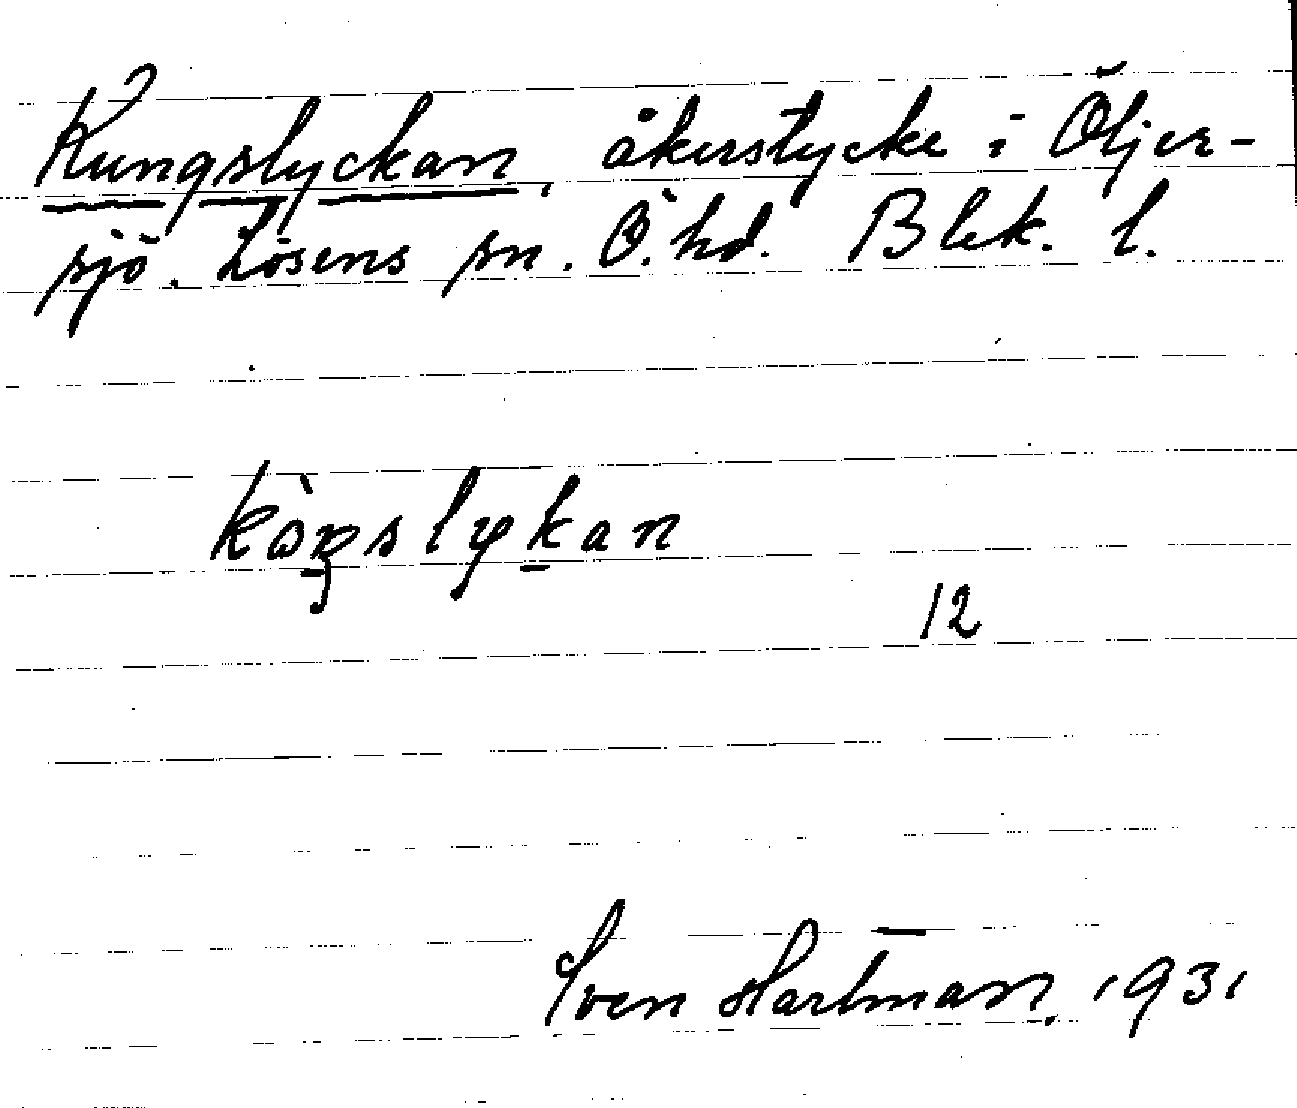 Kungslyckan, åkerstycke i Öljer-
sjö. Lösens sn. Ö. hd. Blek. l.
kòŋslykan
12
Sven Hartman. 1931